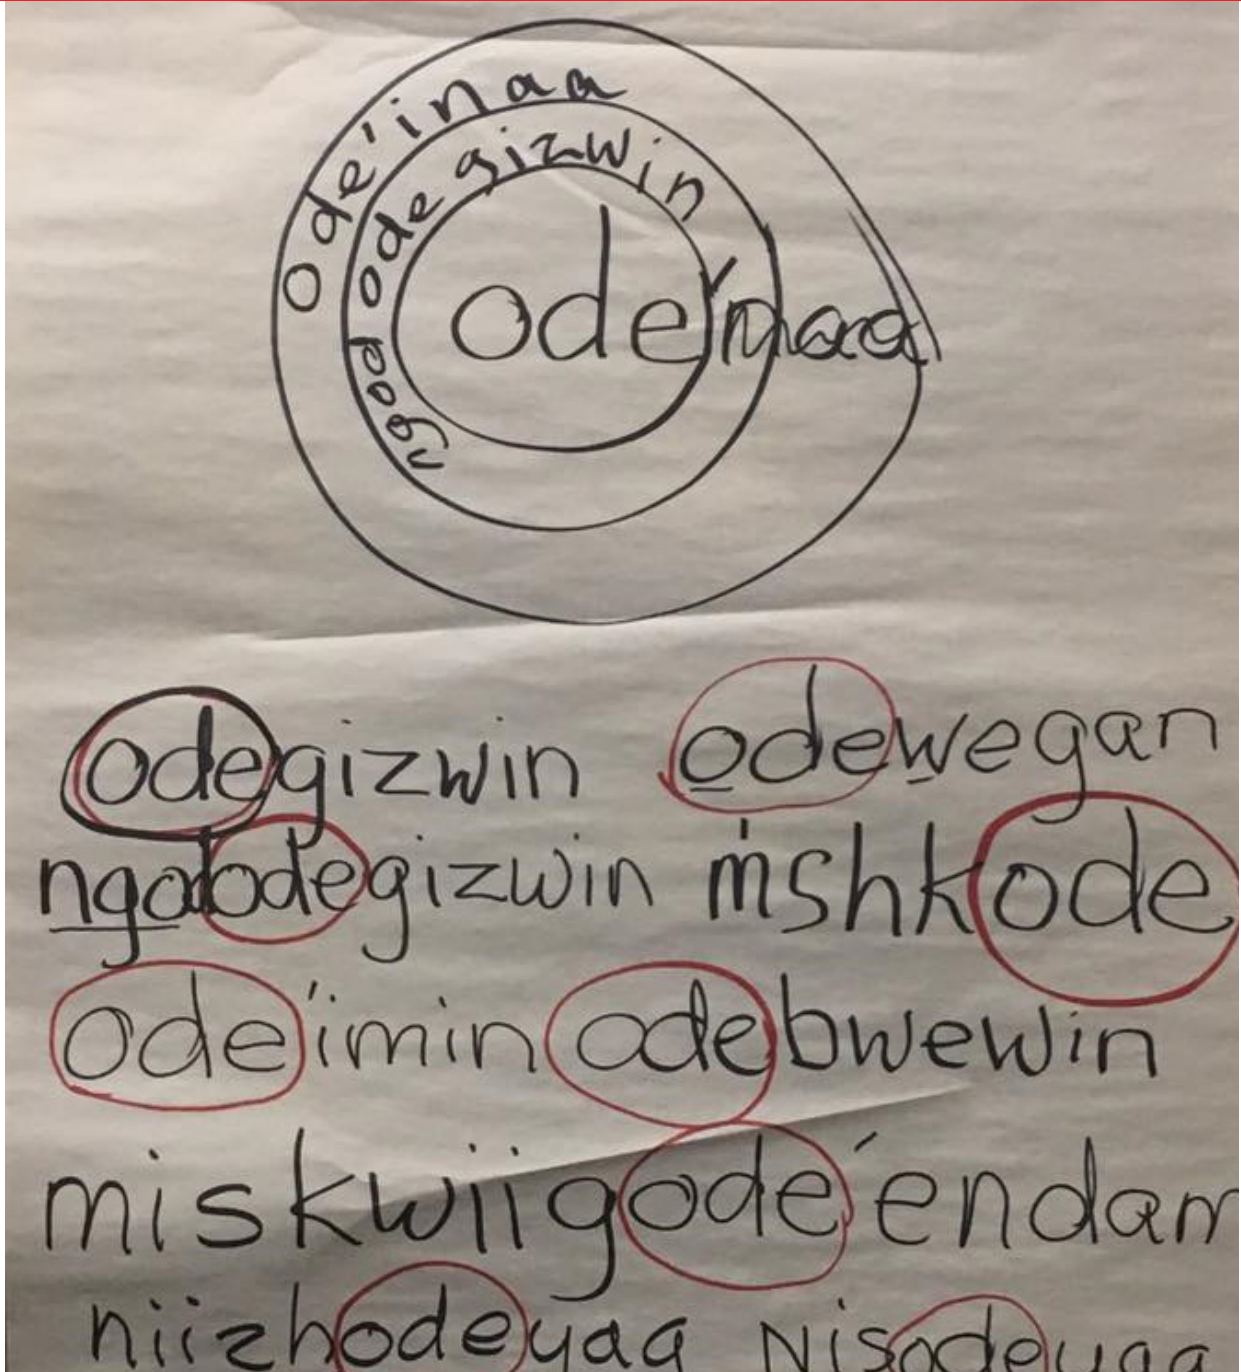 ode'inaa
ngodode gizwin
ode'inaa
odegizwin odewegan
ngododegizwin mshkode
ode'imin odebwewin
miskwiigode'endam
niizhodeyaa Nisodeyaa